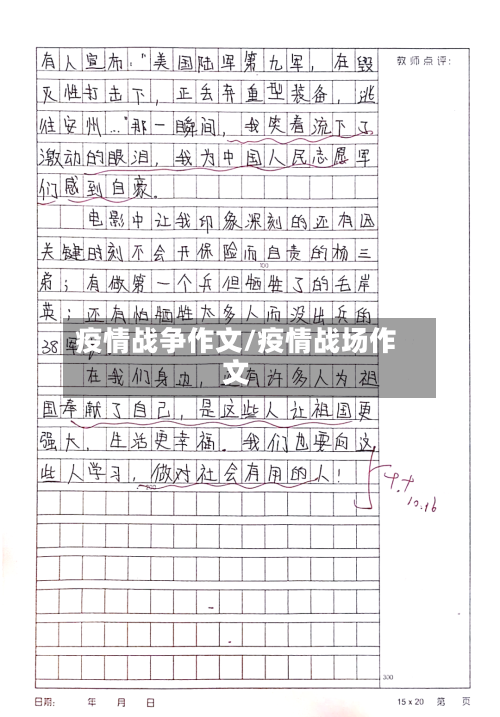 有人宣布："美国陆军第九军，在毁
教师点评：
灭性打击下，正丢弃重型装备，逃
往安州…"那一瞬间，我笑着流下了
激动的眼泪，我为中国人民志愿军
们感到自豪。
电影中让我印象深刻的还有因
关键时刻不会开保险而自责的杨三
100
弟；有做第一个兵但牺牲了的毛岸
英；还有怕牺牲太多人而没出兵的
38军
疫情战争作文/疫情战场作
文
在我们身边，还有许多人为祖
国奉献了自己，是这些人让祖国更
强大，生活更幸福。我们也要向这
些人学习，做对社会有用的人！
10.16
300
日期： 年 月 日
15 x 20 第 页